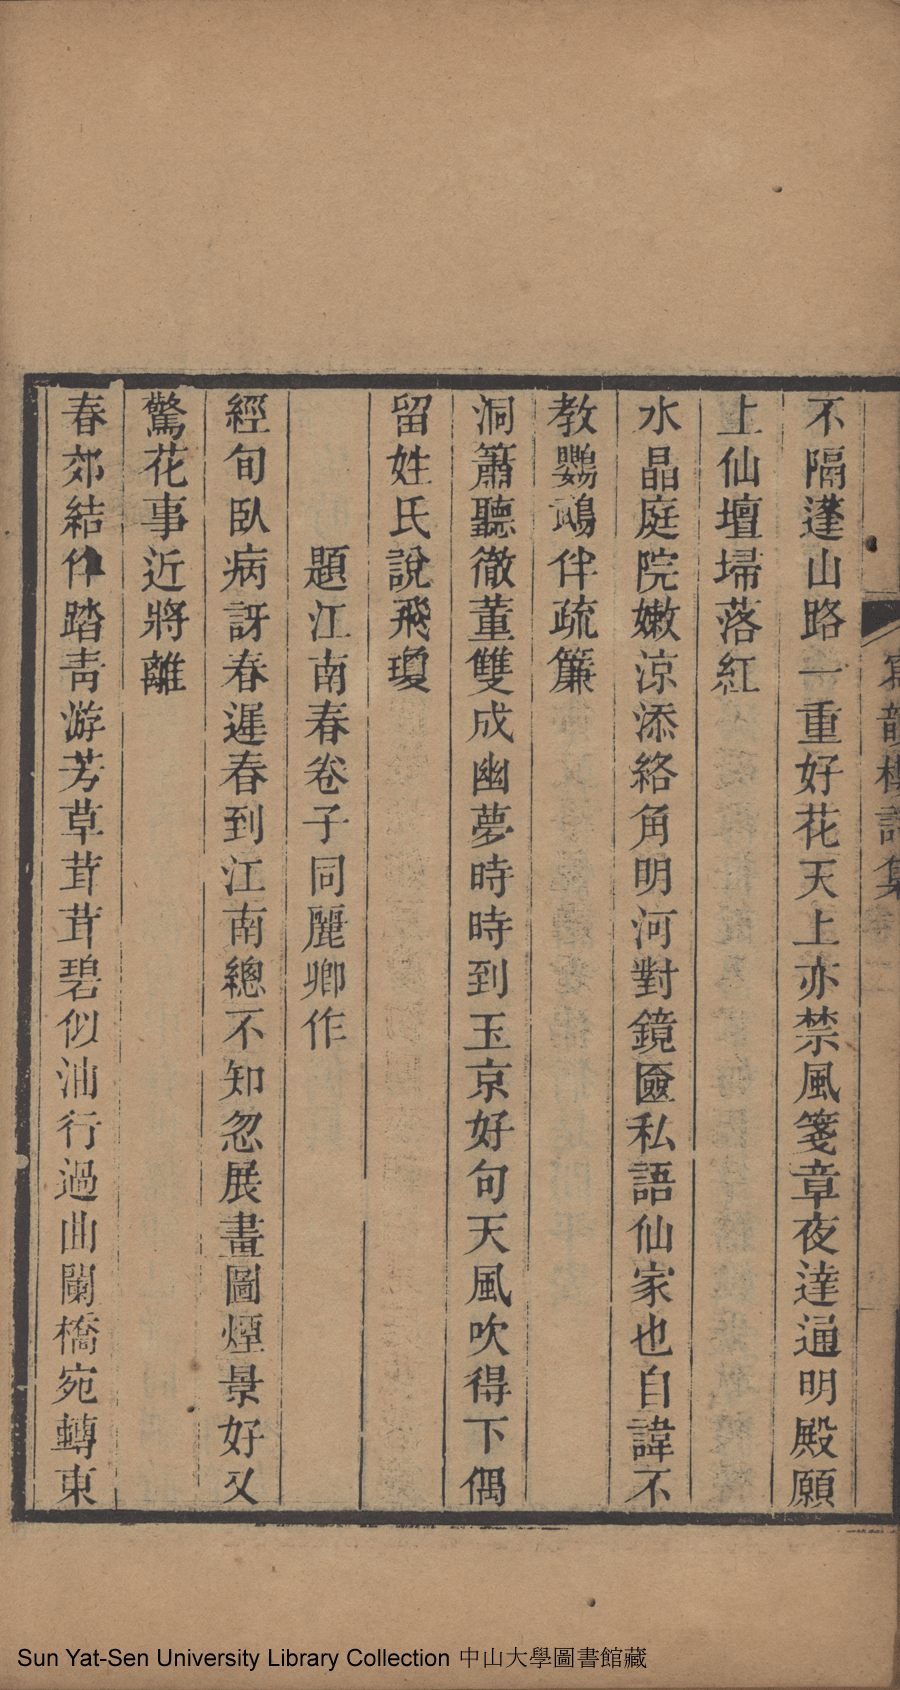 寫韻樓詩集
卷二
不隔蓬山路一重好花天上亦禁風箋章夜達通明殿願
上仙壇埽落紅
水晶庭院嫩涼添絡角明河對鏡匳私語仙家也自諱不
教鸚鵡伴疏簾
洞簫聽徹董雙成幽夢時時到玉京好句天風吹得下偶
留姓氏說飛瓊
題江南春卷子同麗卿作
經旬臥病訝春遲春到江南總不知忽展畫圖煙景好又
驚花事近將離
春郊結伴踏青游芳草茸茸碧似油行過曲闌橋宛轉東
Sun Yat-Sen University Library Collection 中山大學圖書館藏